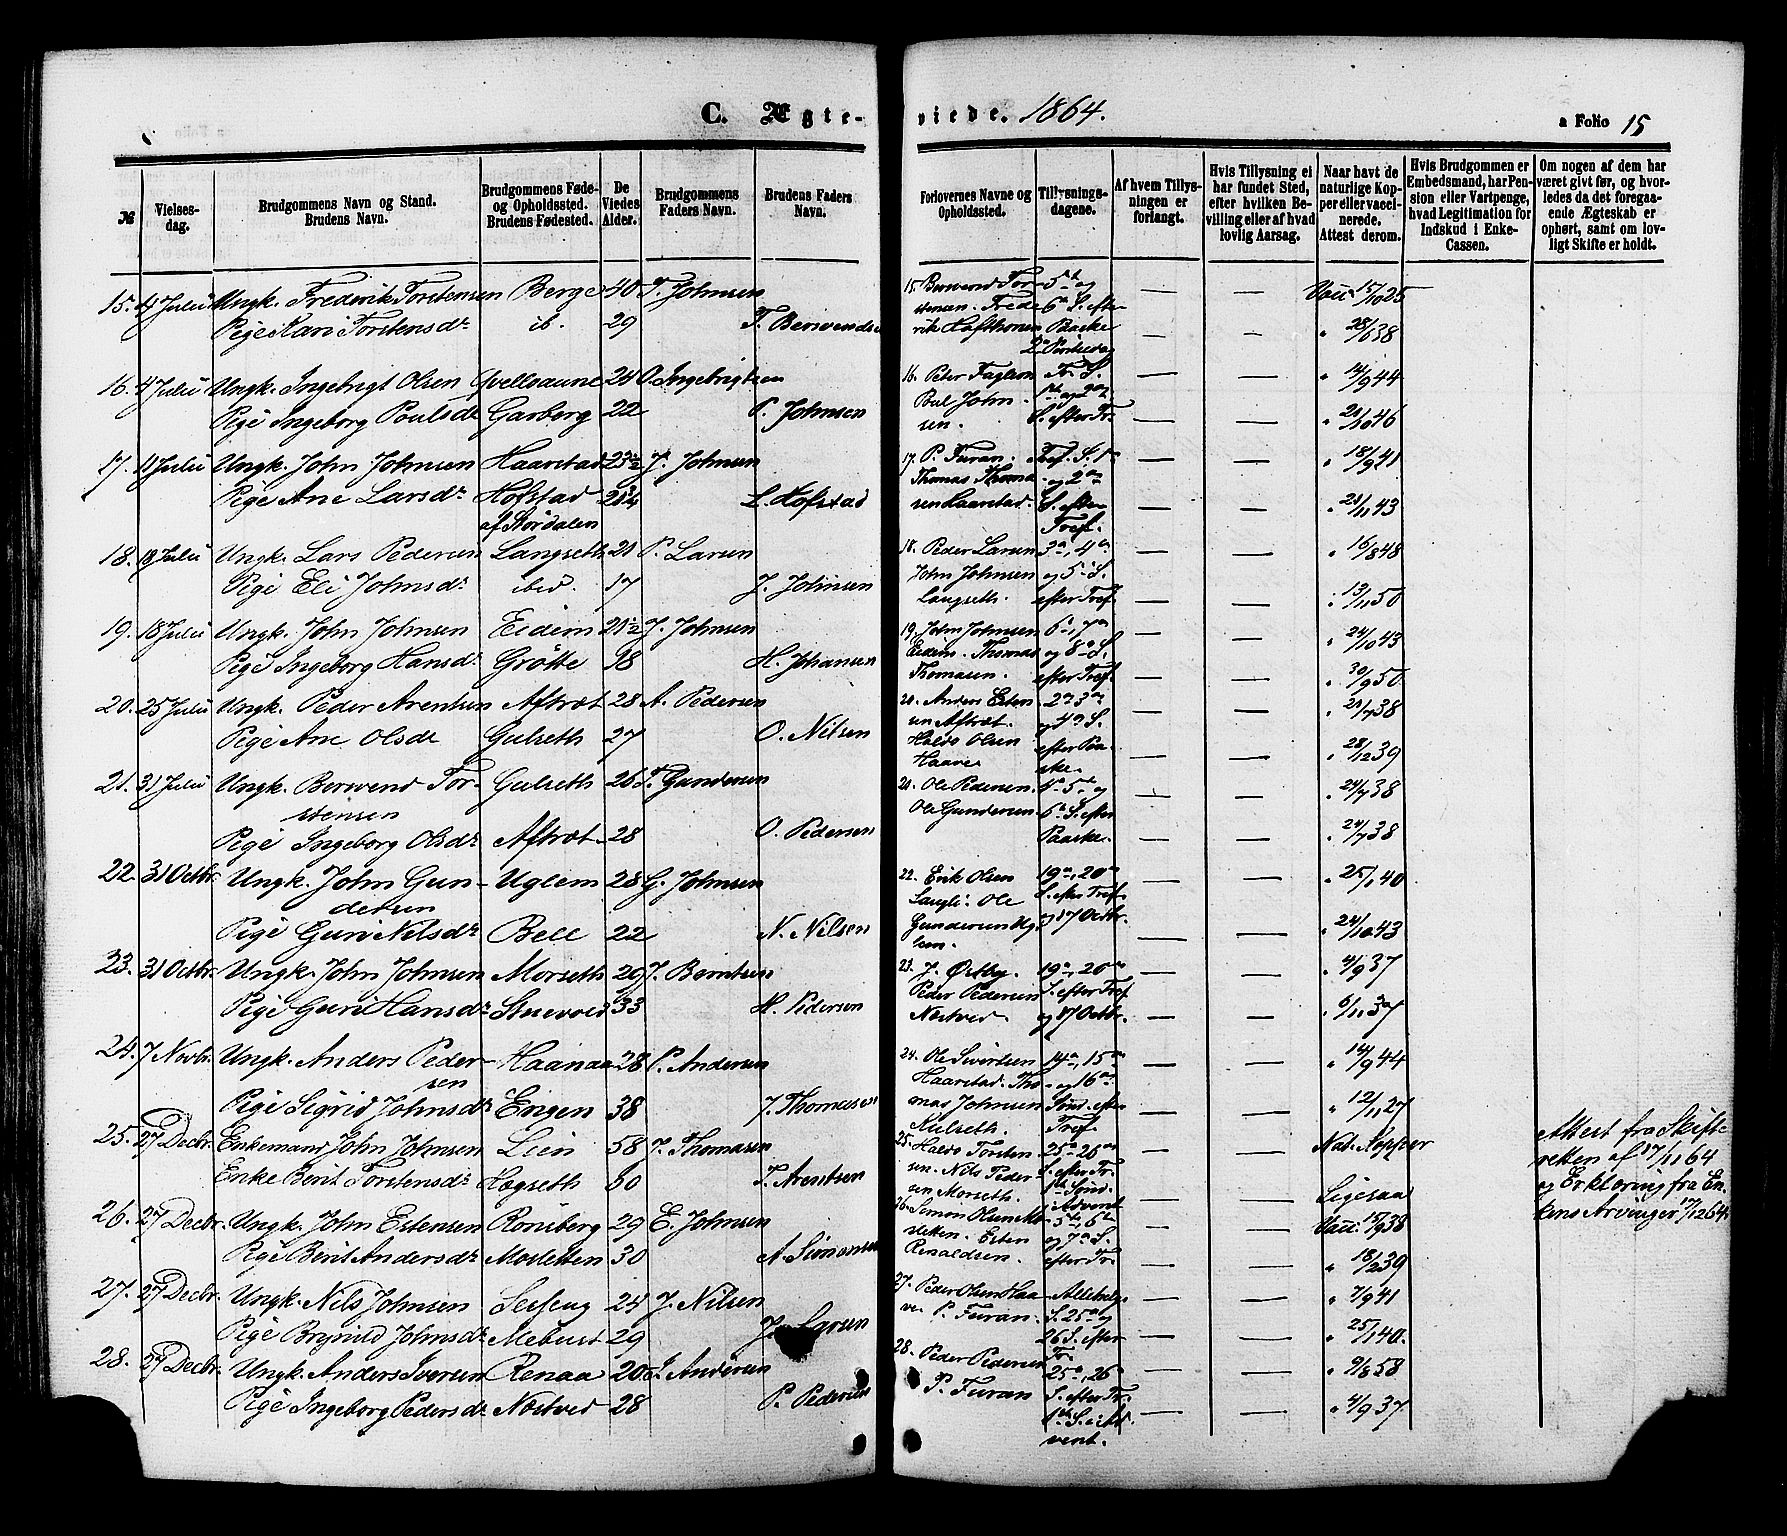 C. Ægte-
viede. 1864.
a Folio 15
№
Vielses-
dag.
Brudgommens Navn og Stand.
Brudens Navn.
Brudgommens Føde-
og Opholdssted.
Brudens Fødested.
De
Viedes
Alder.
Brudgommens
Faders Navn.
Brudens Faders
Navn.
Forlovernes Navne og
Opholdssted.
Tillysnings-
dagene.
Af hvem Tillys-
ningen er
forlangt.
Hvis Tillysning ei
har fundet Sted,
efter hvilken Be-
villing eller af hvad
lovlig Aarsag.
Naar havt de
naturlige Kop-
per eller vacci-
nerede.
Attest derom.
Hvis Brudgommen er
Embedsmand, har Pen-
sion eller Vartpenge,
hvad Legitimation for
Indskud i Enke-
Cassen.
Om nogen af dem har
været givt før, og hvor-
ledes da det foregaa-
ende Ægteskab er
ophørt, samt om lov-
ligt Skifte er holdt.
15. 4 Julii Ungk. Frederik Torstensen Berge 40 T. Johnsen
Pige Kari Torstensdr ib. 29 T. Berwendsen
16. 4 Julii Ungk. Ingebrigt Olsen Qvelloaune 24 O. Ingebrigtsen
Pige Ingeborg Poulsdr Garberg 22 P. Johnsen
17. 11 Julii Ungk. John Johnsen Haarstad 23½ J. Johnsen
Pige Ane Larsdr Hofstad L. Hofstad
af Stördalen
18. Julii Ungk. Lars Pedersen Langseth 21 P. Larsen
Pige Eli Johnsdr ibid. 17 J. Johnsen
19. 18 Julii Ungk. John Johnsen Eidem 21½ J. Johnsen
Pige Ingeborg Hansdr Grötte 18 H. Johansen
20. 25 Julii Ungk. Peder Arentsen Aftret 28 A. Pedersen
Pige Ane Olsdr Gulseth 27 O. Nilsen
21. 31 Julii Ungk. Berwend Tor- Gulseth 26 T. Gundersen
stensen
Pige Ingeborg Olsdr Aftret 28 O. Pedersen
22. 31 Octbr. Ungk. John Gun- Uglem 28 G. Johnsen
dersen
Pige Guri Nilsdr Bell 22 N. Nilsen
23. 31 Octbr. Ungk. John Johnsen Morseth 29 J. Berntsen
Pige Guri Hansdr Stuevold 33 H. Pedersen
24. 7 Novbr. Ungk. Anders Peder- Haanaa 28 P. Andersen
sen
Pige Sigrid Johnsdr Engen 38 J. Thomasen
25. 27 Decbr. Enkemand John Johnsen Lien 58 J. Thomasen
Enke Berit Torstensdr Högseth 50 T. Arentsen
26. 27 Decbr. Ungk. John Estensen Rönsberg 29 E. Johnsen
Pige Berit Andersdr Mosletten 30 A. Simonsen
27. 27 Decbr. Ungk. Nils Johnsen Sesseng 24 J. Nilsen
Pige Brynild Johnsdr Mebust 29 J. Larsen
28. 27 Decbr. Ungk. Anders Iversen Renaa 20 I. Andersen
Pige Ingeborg Pedersdr Nestved 28 P. Pedersen
15. Berwend Tor- 5te og — — Vacc. 15/10 25
stensen. Frede- 6te S. efter
rik Hafthorsen Paaske — — " 28/6 38
2den Pintsedag
16. Peter Fuglem Tr. S. — — " 14/9 44
Pul John- 1ste og 2den
sen. S. efter Tr. — — " 20/10 46
17. P. Furan. Tref. S. 1ste — — " 18/9 41
Thomas Thoma- og 2den
sen Haarstad. S. efter — — " 21/11 43
Tref.
18. Peder Larsen 3die, 4de — — " 16/8 48
John Johnsen og 5te S.
Langseth. efter Tref. — — " 13/11 50
19. John Johnsen 6te, 7de — — " 24/10 43
Eidem. Thomas og 8de S.
Thomasen. efter Tref. — — " 30/9 50
20. Anders Esten- 2den, 3die — — " 21/7 38
sen Aftret. og 4de S.
Haldo Olsen efter Paa- — — " 28/12 39
Haave ske.
21. Ole Pedersen. 4de, 5te og — — " 24/7 38
Ole Gundersen 6te S. efter
Paaske. — — " 24/7 38
22. Erik Olsen 19de, 20de — — " 25/1 40
Langli. Ole S. efter Tref.
Gundersen Ug- og 17 Octbr. — — " 24/10 43
lem.
23. J. Østby. 19de, 20de — — " 4/9 37
Peder Pedersen S. efter Tref.
Nestved og 17 Octbr. — — " 6/11 37
24. Ole Sivertsen 14de, 15de — — " 14/9 44
Haarstad. Tho- og 16de
mas Johnsen Sönd. efter — — " 12/11 27
Kulseth. Tref.
25. Haldo Torsten- 25de, 26de — — Nat. Kopper
sen. Nils Peder- S. efter Tr. — — Ligesaa
sen Morseth. 1ste Sönd.
i Advent
Attest fra Skifte-
retten af 17/11 64
og Erklæring fra En-
kens Arvinger 17/12 64.
26. Simon Olsen Mo- 5te, 6te — — Vacc. 15/9 38
sletten. Esten og 7de S.
Renaldsen. efter Tr. — — " 18/2 39
27. Peder Olsen Haa- Allehelg. — — " 7/9 41
ve. P. Furan. S. 25de og
26 S. efter — — " 25/1 40.
Tr.
28. Peder Pedersen 25de, 26 — — " 9/8 58
P. Furan S. efter Tr.
1ste S. i Ad- — — " 4/9 37.
vent.